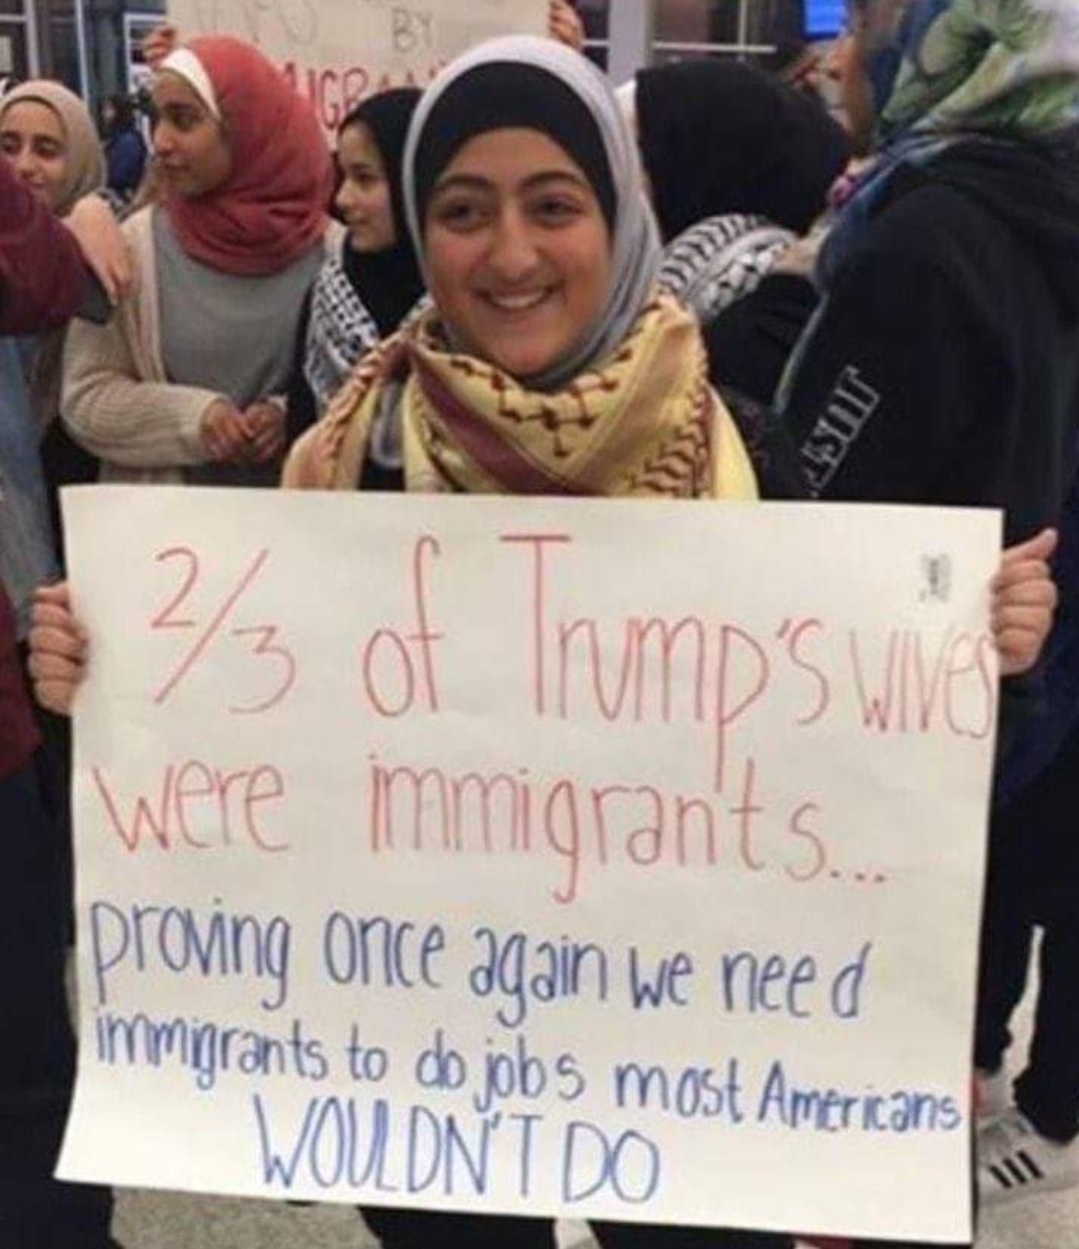 BY
2/3 of Trump's wives
were immigrants...
proving once again we need
immigrants to do jobs most Americans
WOULDN'T DO